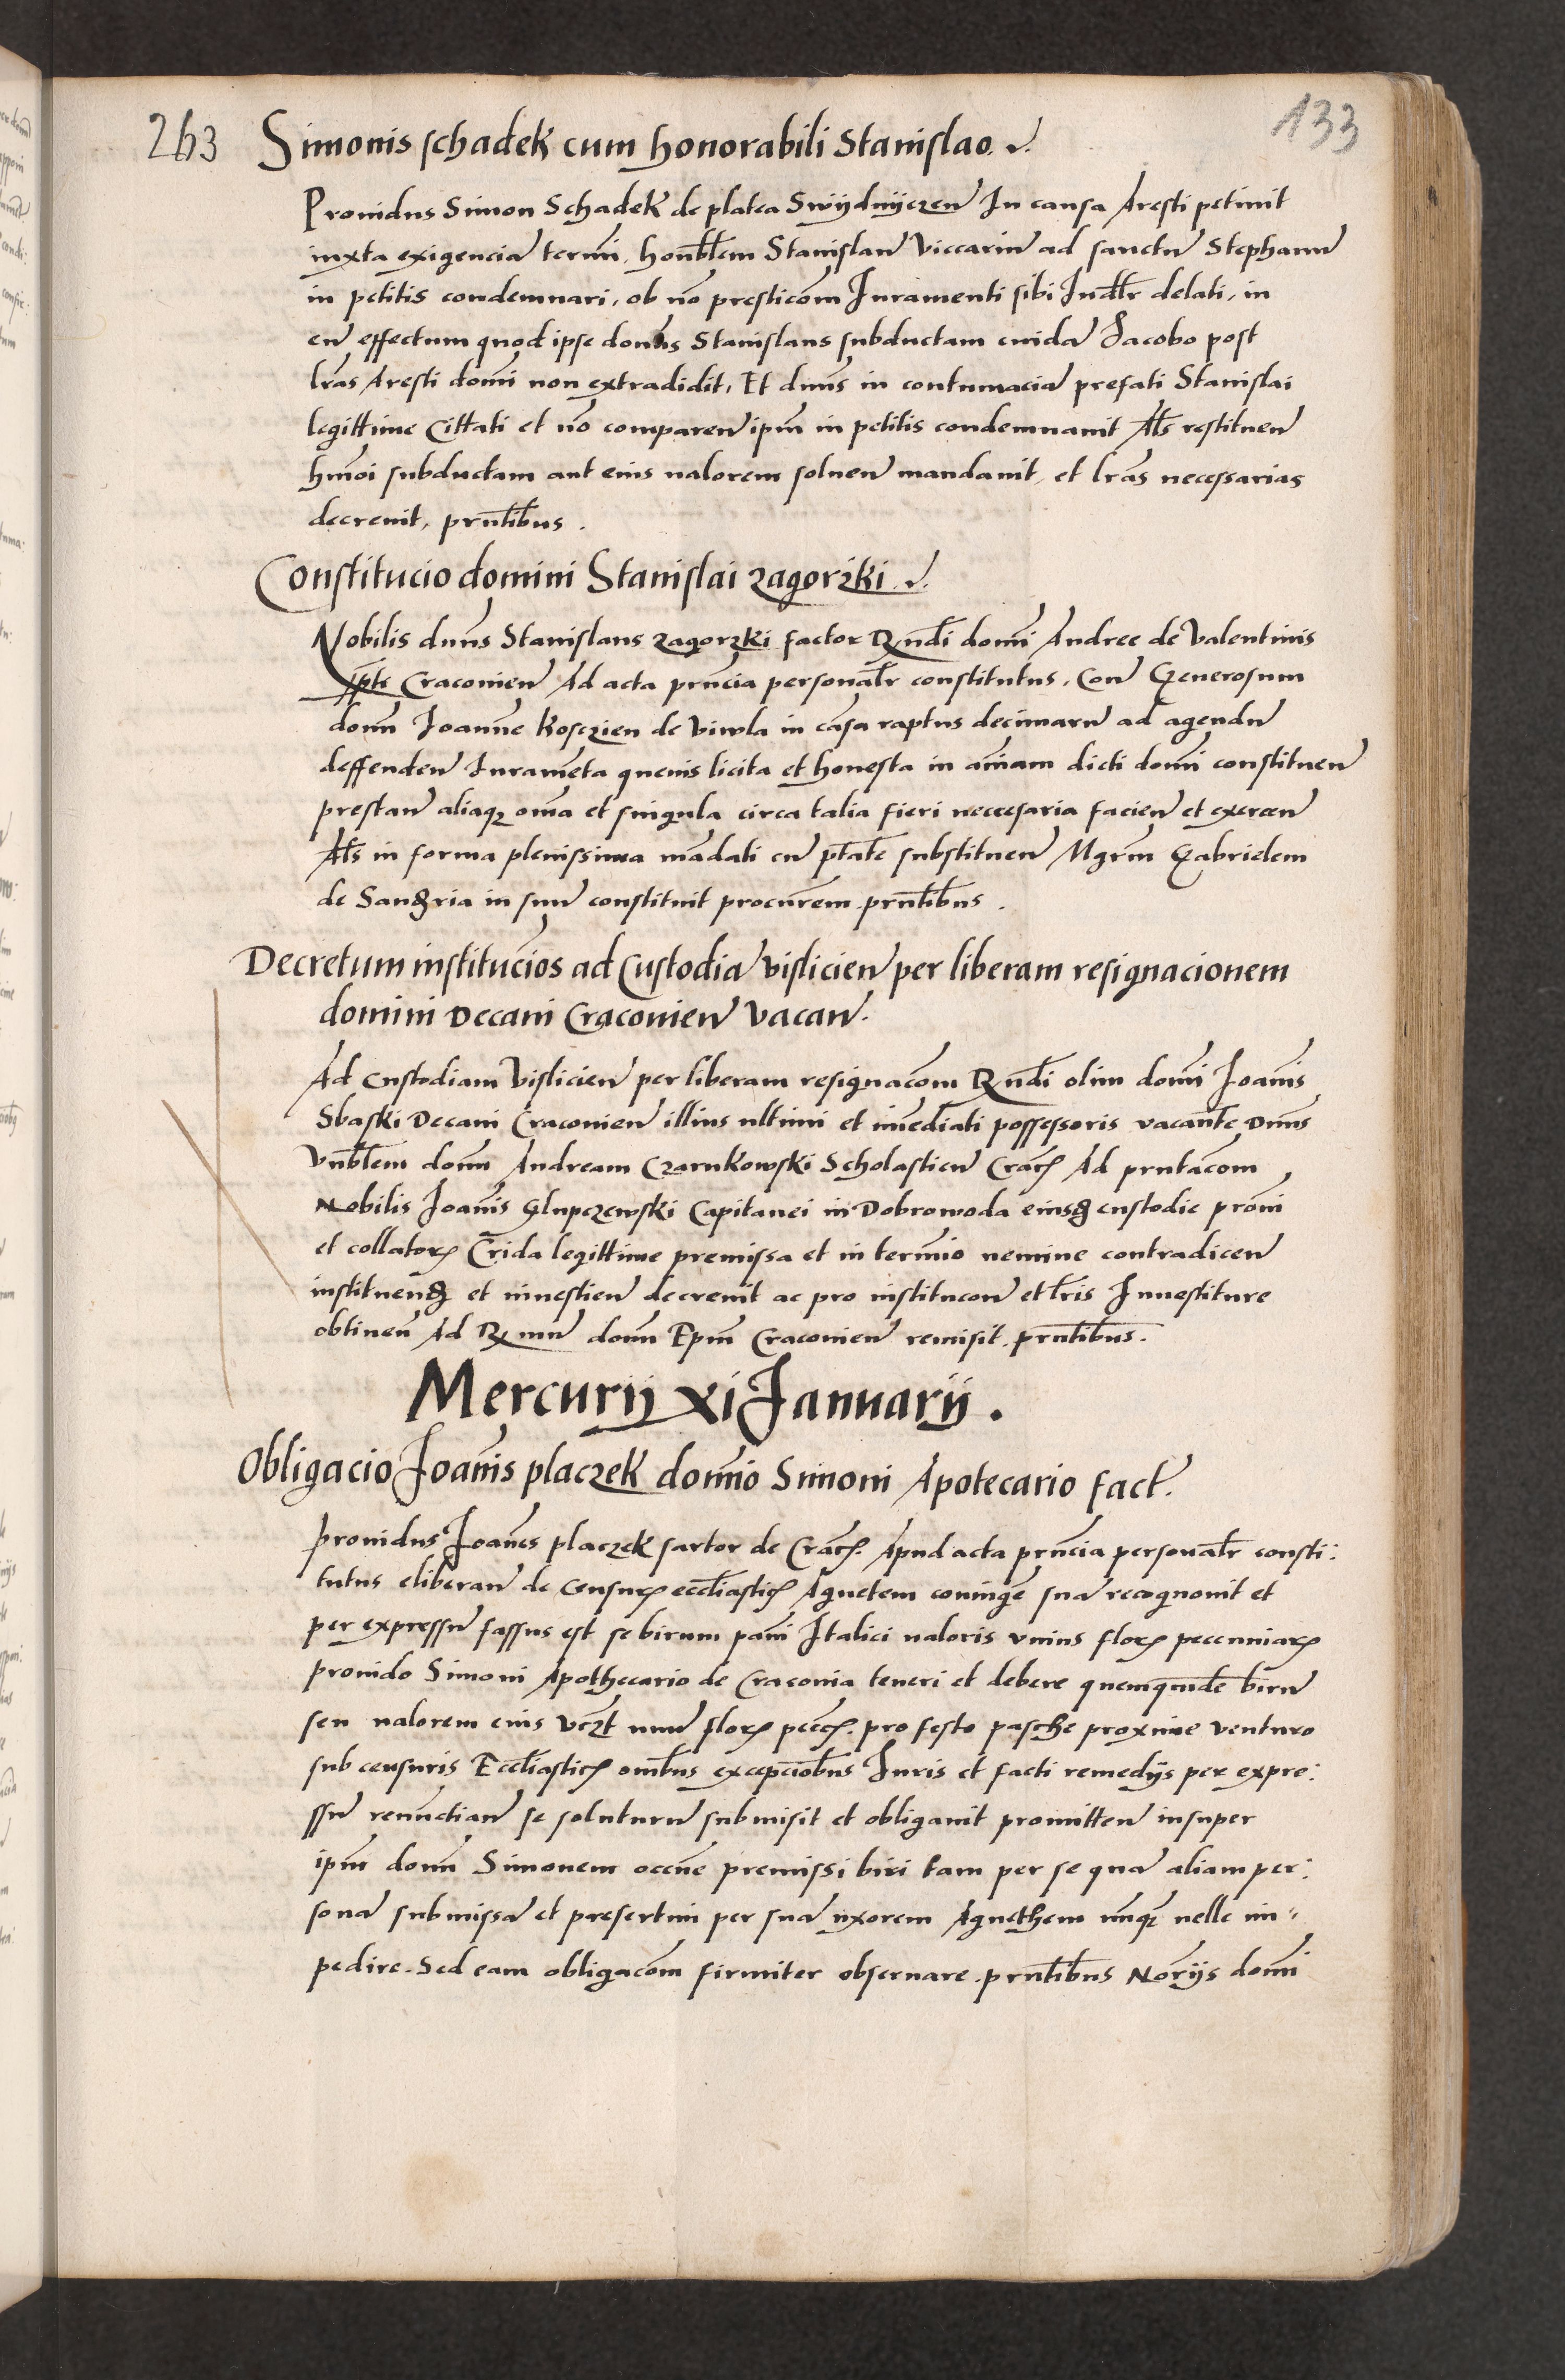 263 Simonis schadek cum honorabili Stanislao
133
Prouidus Simon Schadek de platea Swijdnijczen̄ In causa Aresti petiuit
iuxta exigenciā termī honblēm Stanislaū viccariū ad sanctū Stephanū
in petitis condemnari, ob nō presticōm Iuramenti sibi Iudlr̄ delati, in
eū effectum quod ipse domn̄s Stanislaus subductam cuidā Jacobo post
lrās Aresti domī non extradidit, Et dnūs in contumaciā prefati Stanislai
legittime Cittati et nō comparen̄ ipm̄ in petitis condemnauit Als̄ restituen̄
hmōi subductam aut eius ualorem soluen̄ mandauit, et lrās necessarias
decreuit, prntībus.
Constitucio domini Stanislai zagorzki
Nobilis dnūs Stanislaus zagorzki factor Rndī domī Andree de Valentinis
ppti Craconien̄ Ad acta prn̄cia personalr̄ constitutus, Con̄ Generosum
domn̄ Ioannē kosczien de viwla in cāsa raptus decimarū ad agendū
deffenden̄ Iuramēta queuis licita et honesta in aīam dicti domī constituen̄
prestan̄ aliaqz om̄a et singula circa talia fieri neccesaria facien̄ et exercen̄
Als̄ in forma plenissima mādati cū ptātē substituen̄ Mgrm̄ Gabrielem
de Sangria in suū constituit procurēm prntībus.
Decretum institucios ad Custodiā visliciēn per liberam resignacionem
domini Decani Craconien̄ vacan̄.
Ad custodiam vislicien̄ per liberam resignacōm Rndī olim domī Ioannis
Sbaski Decani Craconien̄ illius ultimi et imēdiati possessoris vacantē Dnūs
Vnblēm domn̄ Andream Czarnkowski Scholasticū Crac̄ Ad prntacōm
Nobilis Ioannis Glupczewski Capitanei in Dobrowoda eiusq custodie prōni
et collator̄ Crīda legittime premissa et in termīo nemine contradicen̄
instituend et inuestien̄ decreuit ac pro institucon̄ et lrīs Inuestiture
obtinen̄ Ad Rmū domn̄ Epm̄ Craconien̄ remisit prntībus.
Mercurij xi Januarij.
Obligacio Joannis placzek domīo Simoni Apotecario fact̄.
Prouidus Joannes placzek sartor de Crac̄. Apud acta prn̄cia personalr̄ consti:
tutus eliberan̄ de censur̄ ecclīastic̄ Agnetem coniugē suā recognouit et
per expressū fassus est se birum panī Italici ualoris unius flor̄ peccuniar̄
prouido Simoni Apothecario de Craconia teneri et debere quemquidē birū
seu ualorem eius vczt̄ unū flor̄ pecc̄. pro festo pasche proxime venturo
sub censuris Ecclīastic̄ omībus excepciōbus Iuris et facti remedijs per expre:
ssū renūctian̄ se soluturū submisit et obligauit promitten̄ insuper
ipm̄ domn̄ Simonem occnē premissi biri tam per se quā aliam per:
sonā submissā et presertim per suā uxorem Agnethem unqz nelle im-
pedire. Sed eam obligacōm firmiter obseruare. prntībus Norijs domī